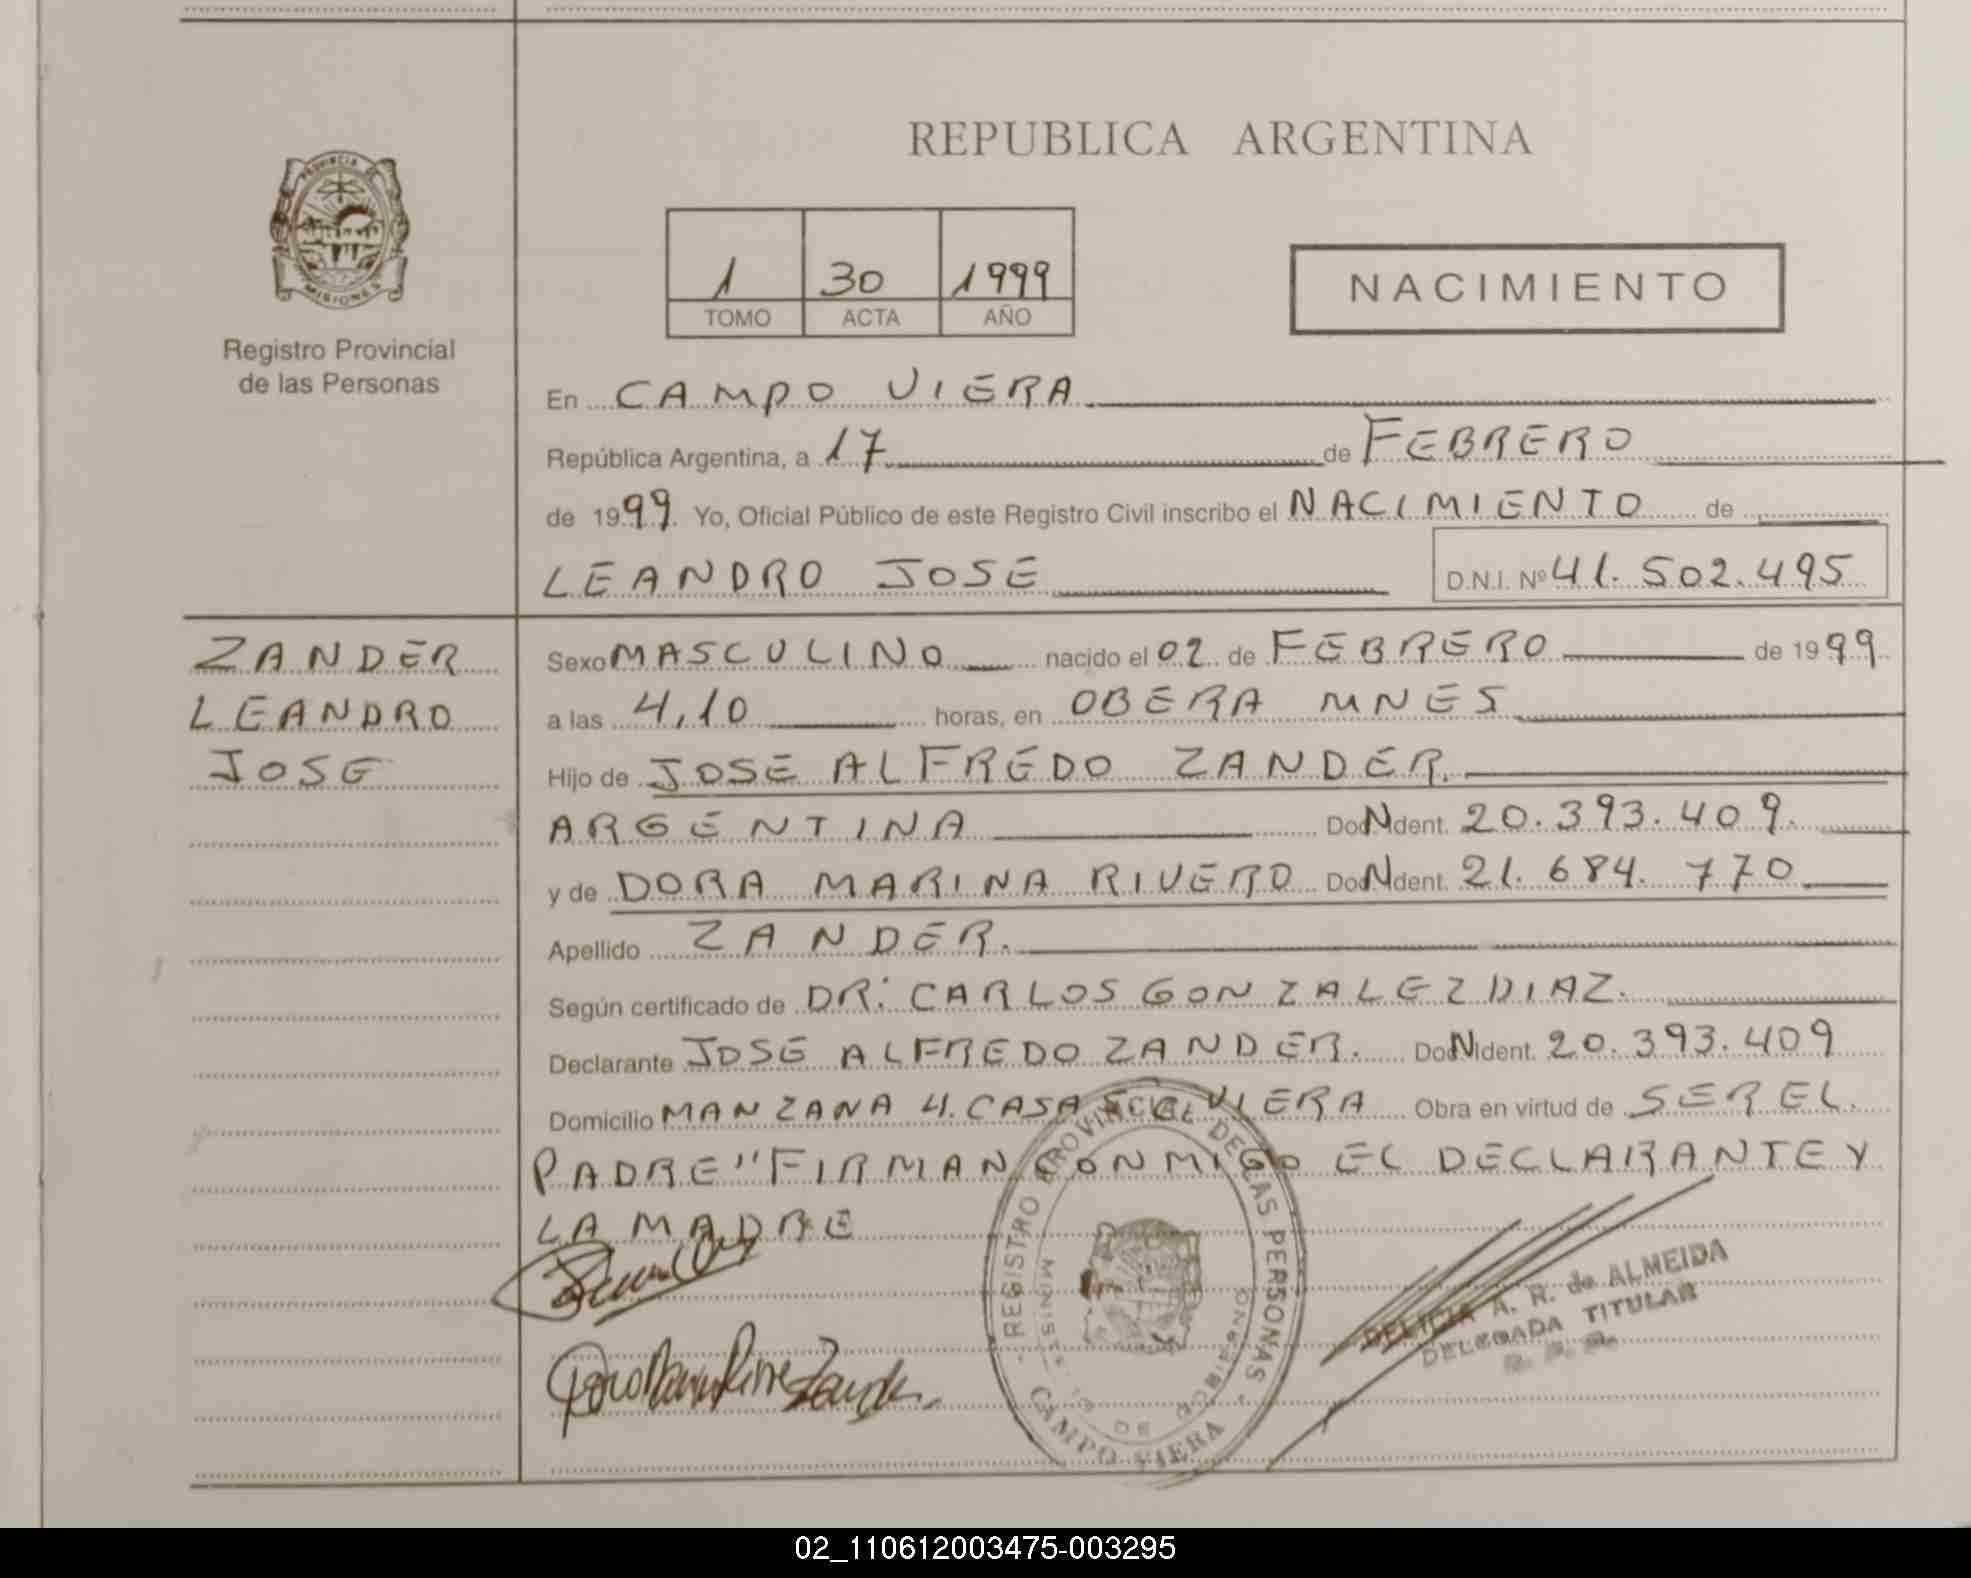 REPUBLICA ARGENTINA
PROVINCIA DE
MISIONES
Registro Provincial
de las Personas
1 30 1999
TOMO ACTA AÑO
NACIMIENTO
En CAMPO VIERA
República Argentina, a 17 de FEBRERO
de 1999 Yo, Oficial Público de este Registro Civil inscribo el NACIMIENTO de
LEANDRO JOSE D.N.I. Nº 41.502.495
ZANDER
LEANDRO
JOSE
Sexo MASCULINO nacido el 02 de FEBRERO de 1999
a las 4,10 horas, en OBERA MNES
Hijo de JOSE ALFREDO ZANDER.
ARGENTINA Doc N Ident. 20.393.409.
y de DORA MARINA RIVERO Doc N Ident. 21.684.770
Apellido ZANDER.
Según certificado de DR: CARLOS GONZALEZ DIAZ.
Declarante JOSE ALFREDO ZANDER. Doc N Ident. 20.393.409
Domicilio MANZANA 4. CASA 5 C. VIERA Obra en virtud de SER EL
PADRE" FIRMAN CONMIGO EL DECLARANTE Y
LA MADRE
REGISTRO PROVINCIAL DE LAS PERSONAS
MINISTERIO DE GOBIERNO
CAMPO VIERA
DELICIA A. R. de ALMEIDA
DELEGADA TITULAR
02_110612003475-003295